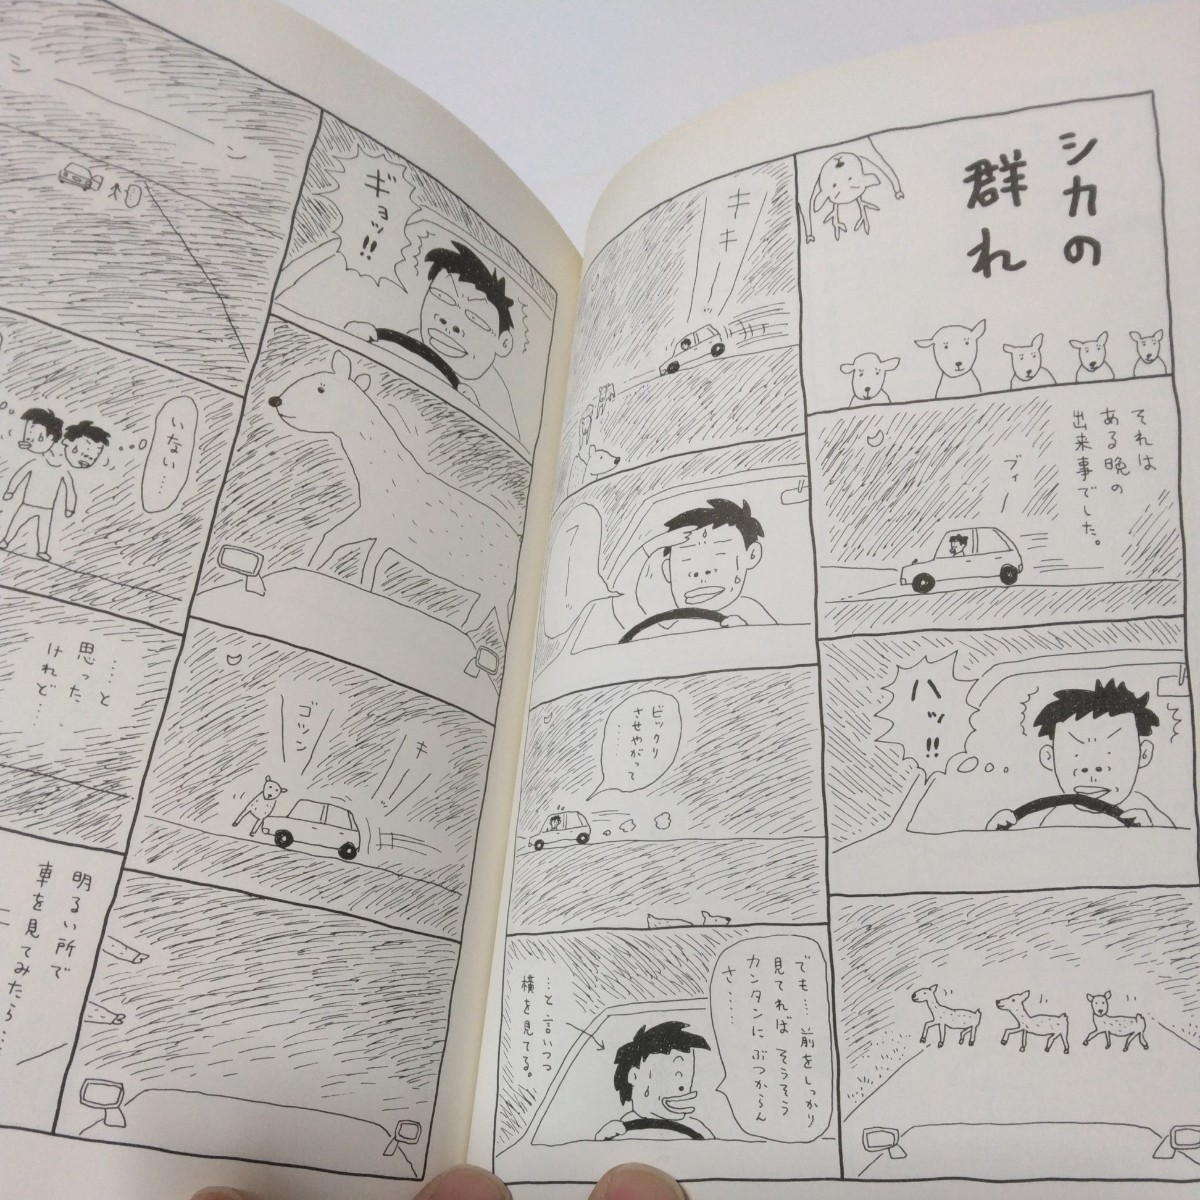 シカの
群れ
それは
ある晩の
出来事でした。
ブィー
ハッ!!
キキ
ビックリ
させやがって
……
でも…前をしっかり
見てれば そうそう
カンタンに ぶつからん
さ……
…と、言いつつ
横を見てる。
ギョッ!!
ゴツン
キ
シーン
いない…
…と
思った
けれど…
明るい所で
車を見てみたら…